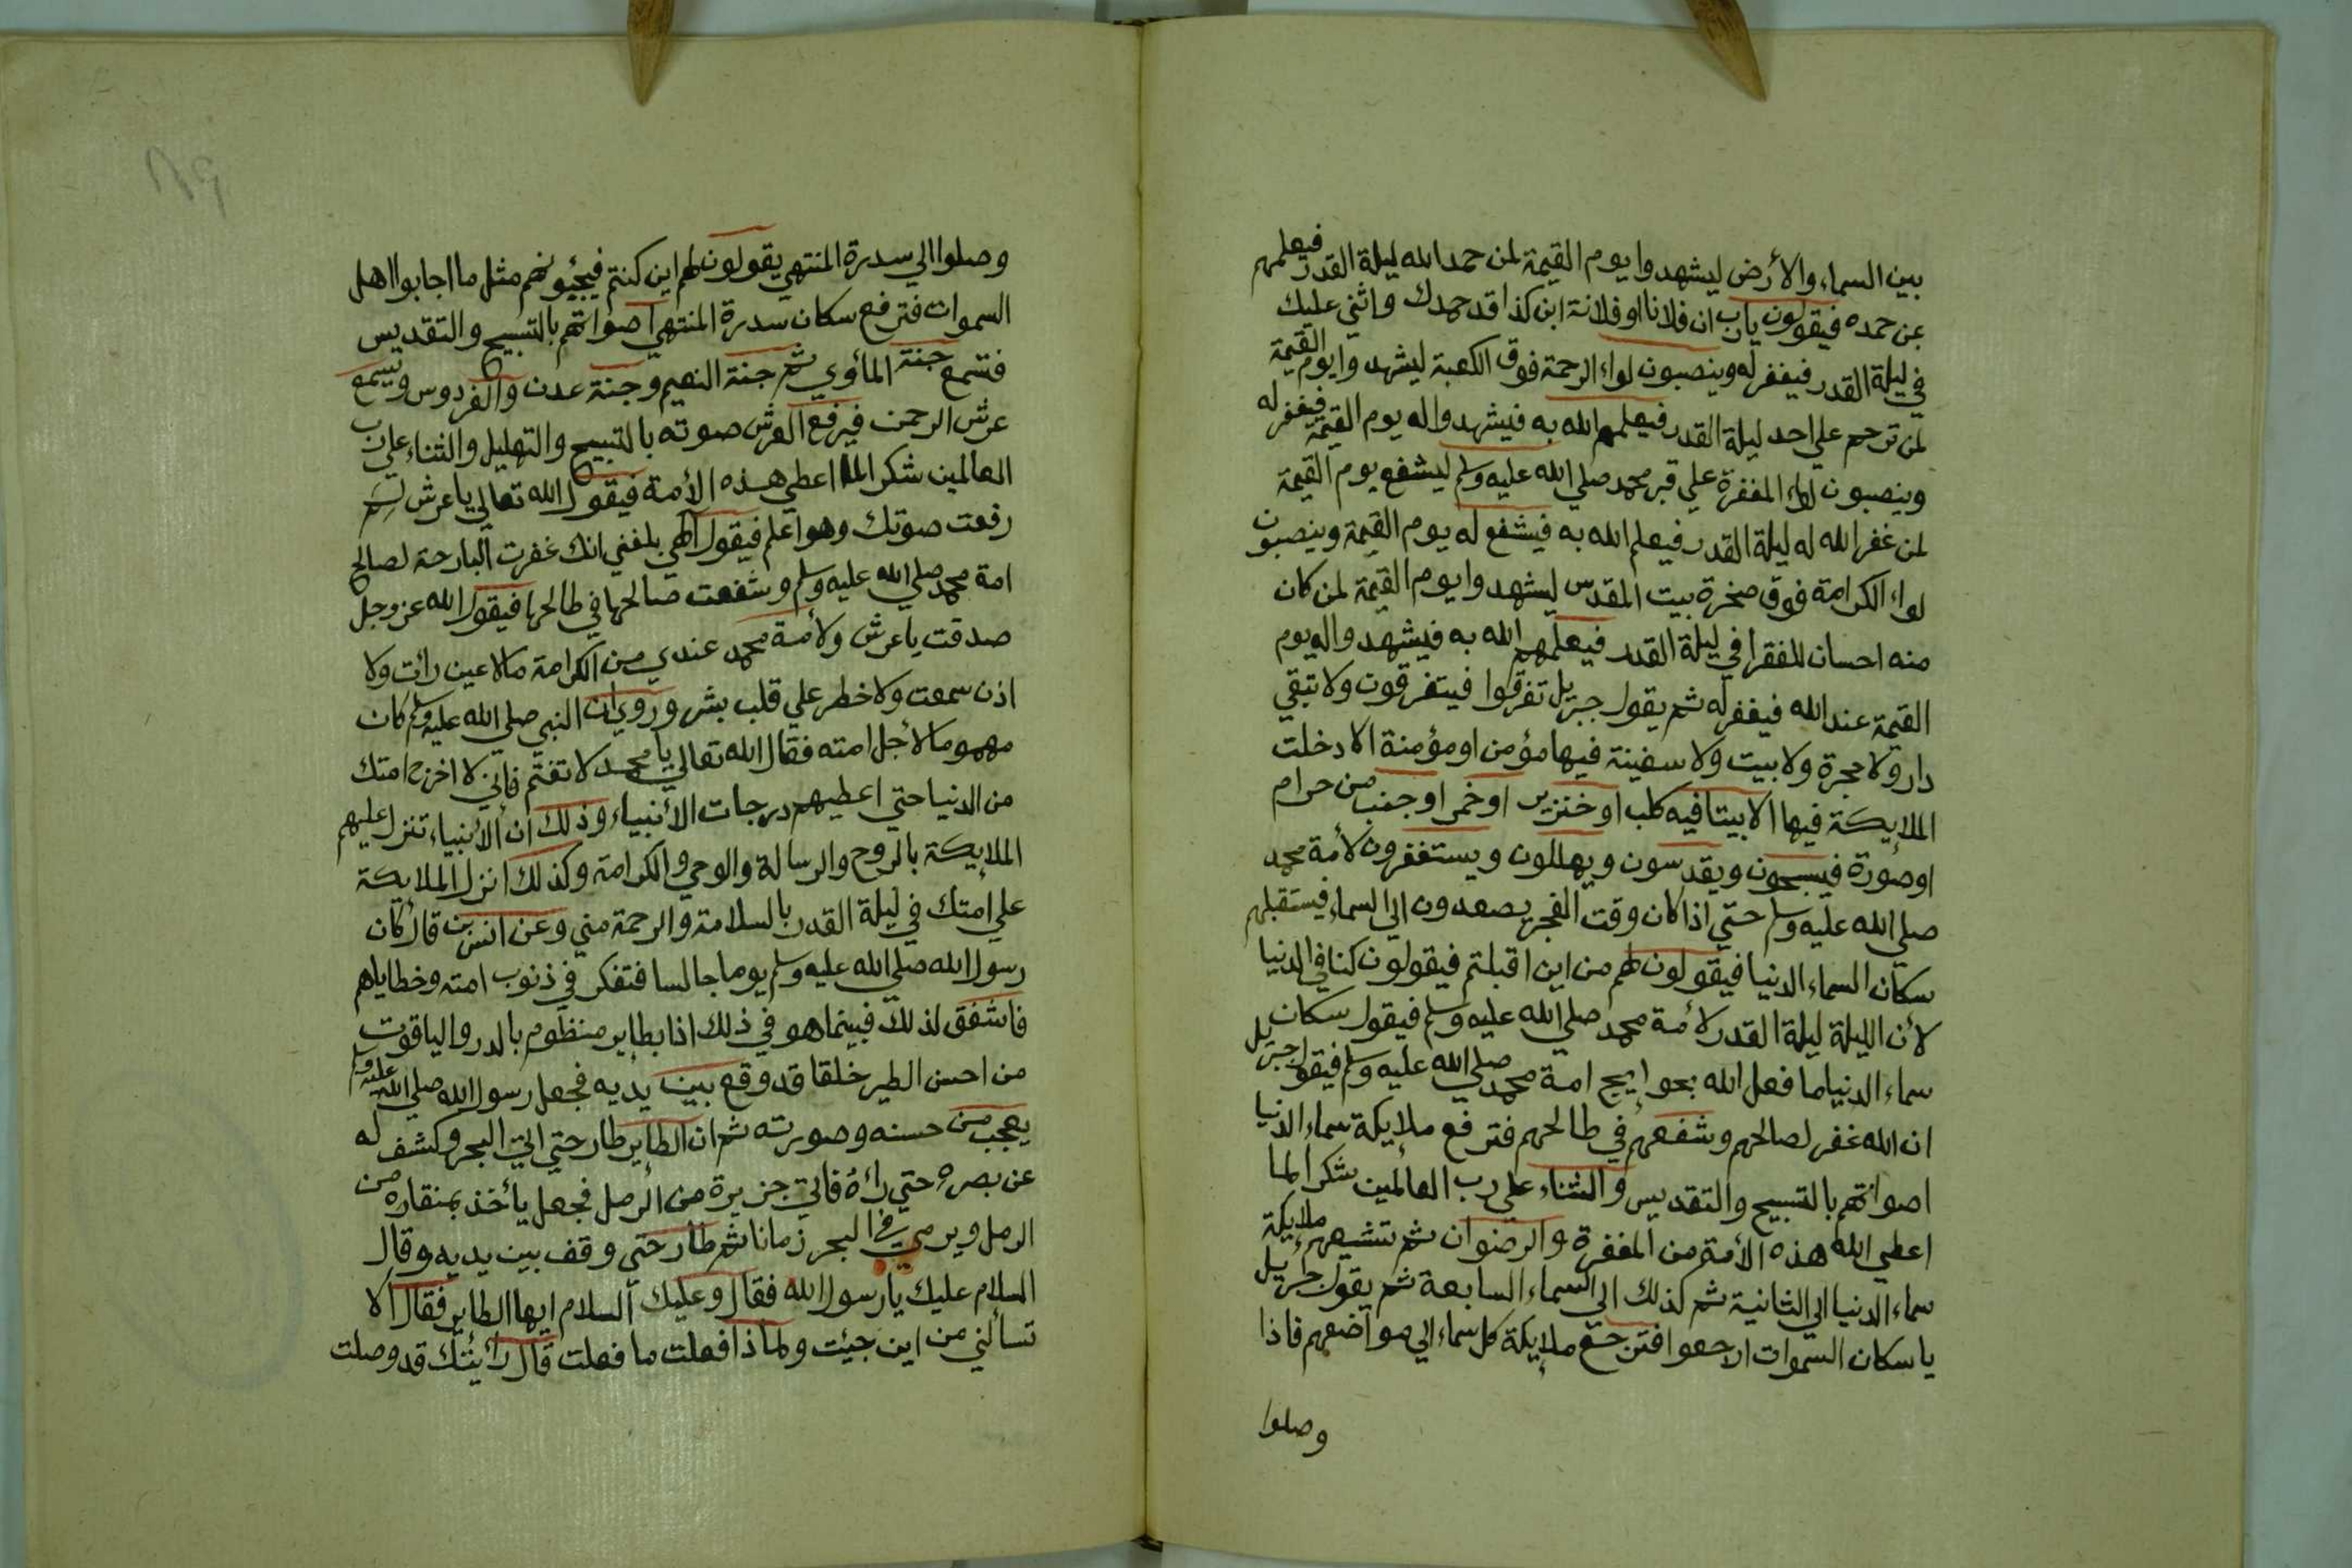 بين السماء والأرض ليشهدوا يوم القيمة لمن حمد الله ليلة القدر فيعلمهم
عن حمده فيقولون يارب ان فلانا او فلانة ابن كذا قد حمدك واثني عليك
في ليلة القدر فيغفر له وينصبون لواء الرحمة فوق الكعبة ليشهدوا يوم القيمة
لمن ترحم علي احد ليلة القدر فيعلمهم الله به فيشهدوا له يوم القيمة فيغفر له
وينصبون لواء المغفرة علي قبر محمد صلي الله عليه وسلم ليشفع يوم القيمة
لمن غفر الله له ليلة القدر فيعلم الله به فيشفع له يوم القيمة وينصبون
لواء الكرامة فوق صخرة بيت المقدس ليشهدوا يوم القيمة لمن كان
منه احسان للفقرا في ليلة القدر فيعلمهم الله به فيشهدوا له يوم
القيمة عند الله فيغفر له ثم يقول جبريل تفرقوا فيتفرقون ولا تبقي
دار ولا حجرة ولا بيت ولا سفينة فيها مؤمن او مؤمنة الا دخلت
الملايكة فيها الا بيتا فيه كلب او خنزير او خمر او جنب من حرام
او صورة فيسبحون ويقدسون ويهللون ويستغفرون لأمة محمد
صلي الله عليه وسلم حتي اذا كان وقت الفجر يصعدون الي السماء فيستقبلهم
سكان السماء الدنيا فيقولون لهم من اين اقبلتم فيقولون كنا في الدنيا
لأن الليلة ليلة القدر لأمة محمد صلي الله عليه وسلم فيقول سكان
سماء الدنيا ما فعل الله بحوايج امة محمد صلي الله عليه وسلم فيقول جبريل
ان الله غفر لصالحهم وشفعهم في طالحهم فترفع ملايكة سماء الدنيا
اصواتهم بالتسبيح والتقديس والثناء علي رب العالمين شكرا لما
اعطي الله هذه الأمة من المغفرة والرضوان ثم تشيعهم ملايكة
سماء الدنيا الي الثانية ثم كذلك الي السماء السابعة ثم يقول جبريل
يا سكان السموات ارجعوا فترجع ملايكة كل سماء الي مواضعهم فاذا
وصلوا
وصلوا الي سدرة المنتهي يقولون لهم اين كنتم فيجيبونهم مثل ما اجابوا اهل
السموات فترفع سكان سدرة المنتهي اصواتهم بالتسبيح والتقديس
فتسمع جنة المأوي ثم جنة النعيم وجنة عدن والفردوس ويسمع
عرش الرحمن فيرفع العرش صوته بالتسبيح والتهليل والثناء علي رب
العالمين شكرا لما اعطي هذه الأمة فيقول الله تعالي يا عرش لم
رفعت صوتك وهو اعلم فيقول الهي بلغني انك غفرت البارحة لصالح
امة محمد صلي الله عليه وسلم وشفعت صالحها في طالحها فيقول الله عز وجل
صدقت يا عرش ولأمة محمد عندي من الكرامة مالا عين رأت ولا
اذن سمعت ولا خطر علي قلب بشر وروي ان النبي صلي الله عليه وسلم كان
مهموما لأجل امته فقال الله تعالي يا محمد لا تغتم فاني لا اخرج امتك
من الدنيا حتي اعطيهم درجات الأنبياء وذلك ان الأنبياء تنزل عليهم
الملايكة بالروح والرسالة والوحي والكرامة وكذلك انزل الملايكة
علي امتك في ليلة القدر بالسلامة والرحمة مني وعن انس بن قال كان
رسول الله صلي الله عليه وسلم يوما جالسا فتفكر في ذنوب امته وخطاياهم
فاشفق لذلك فبينما هو في ذلك اذا بطاير منظوم بالدر والياقوت
من احسن الطير خلقا قد وقع بين يديه فجعل رسول الله صلي الله عليه وسلم
يعجب من حسنه وصورته ثم ان الطاير طار حتي اتي البحر وكشف له
عن بصره حتي رأه فاتي جزيرة من الرمل فجعل يأخذ بمنقاره من
الرمل ويرمي في البحر زمانا ثم طار حتي وقف بين يديه وقال
السلام عليك يا رسول الله فقال وعليك السلام ايها الطاير فقال الا
تسألني من اين جيئت ولماذا فعلت ما فعلت قال رأيتك قد وصلت